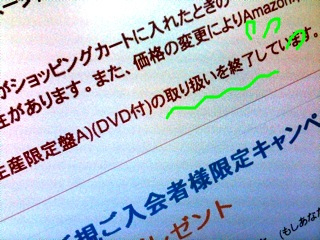 がショッピングカートに入れたときの
在があります。また、価格の変更によりAmazon
生産限定盤A)(DVD付)の取り扱いを終了しています。
規ご入会者様限定キャンペ
レゼント
(もしあな